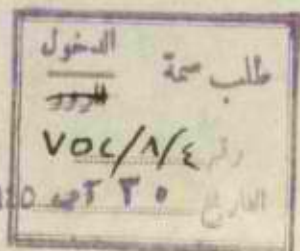 طلب سمة الدخول
المرور
رقم ٧٥٢/٨/٤
التاريخ ٣٠ آب